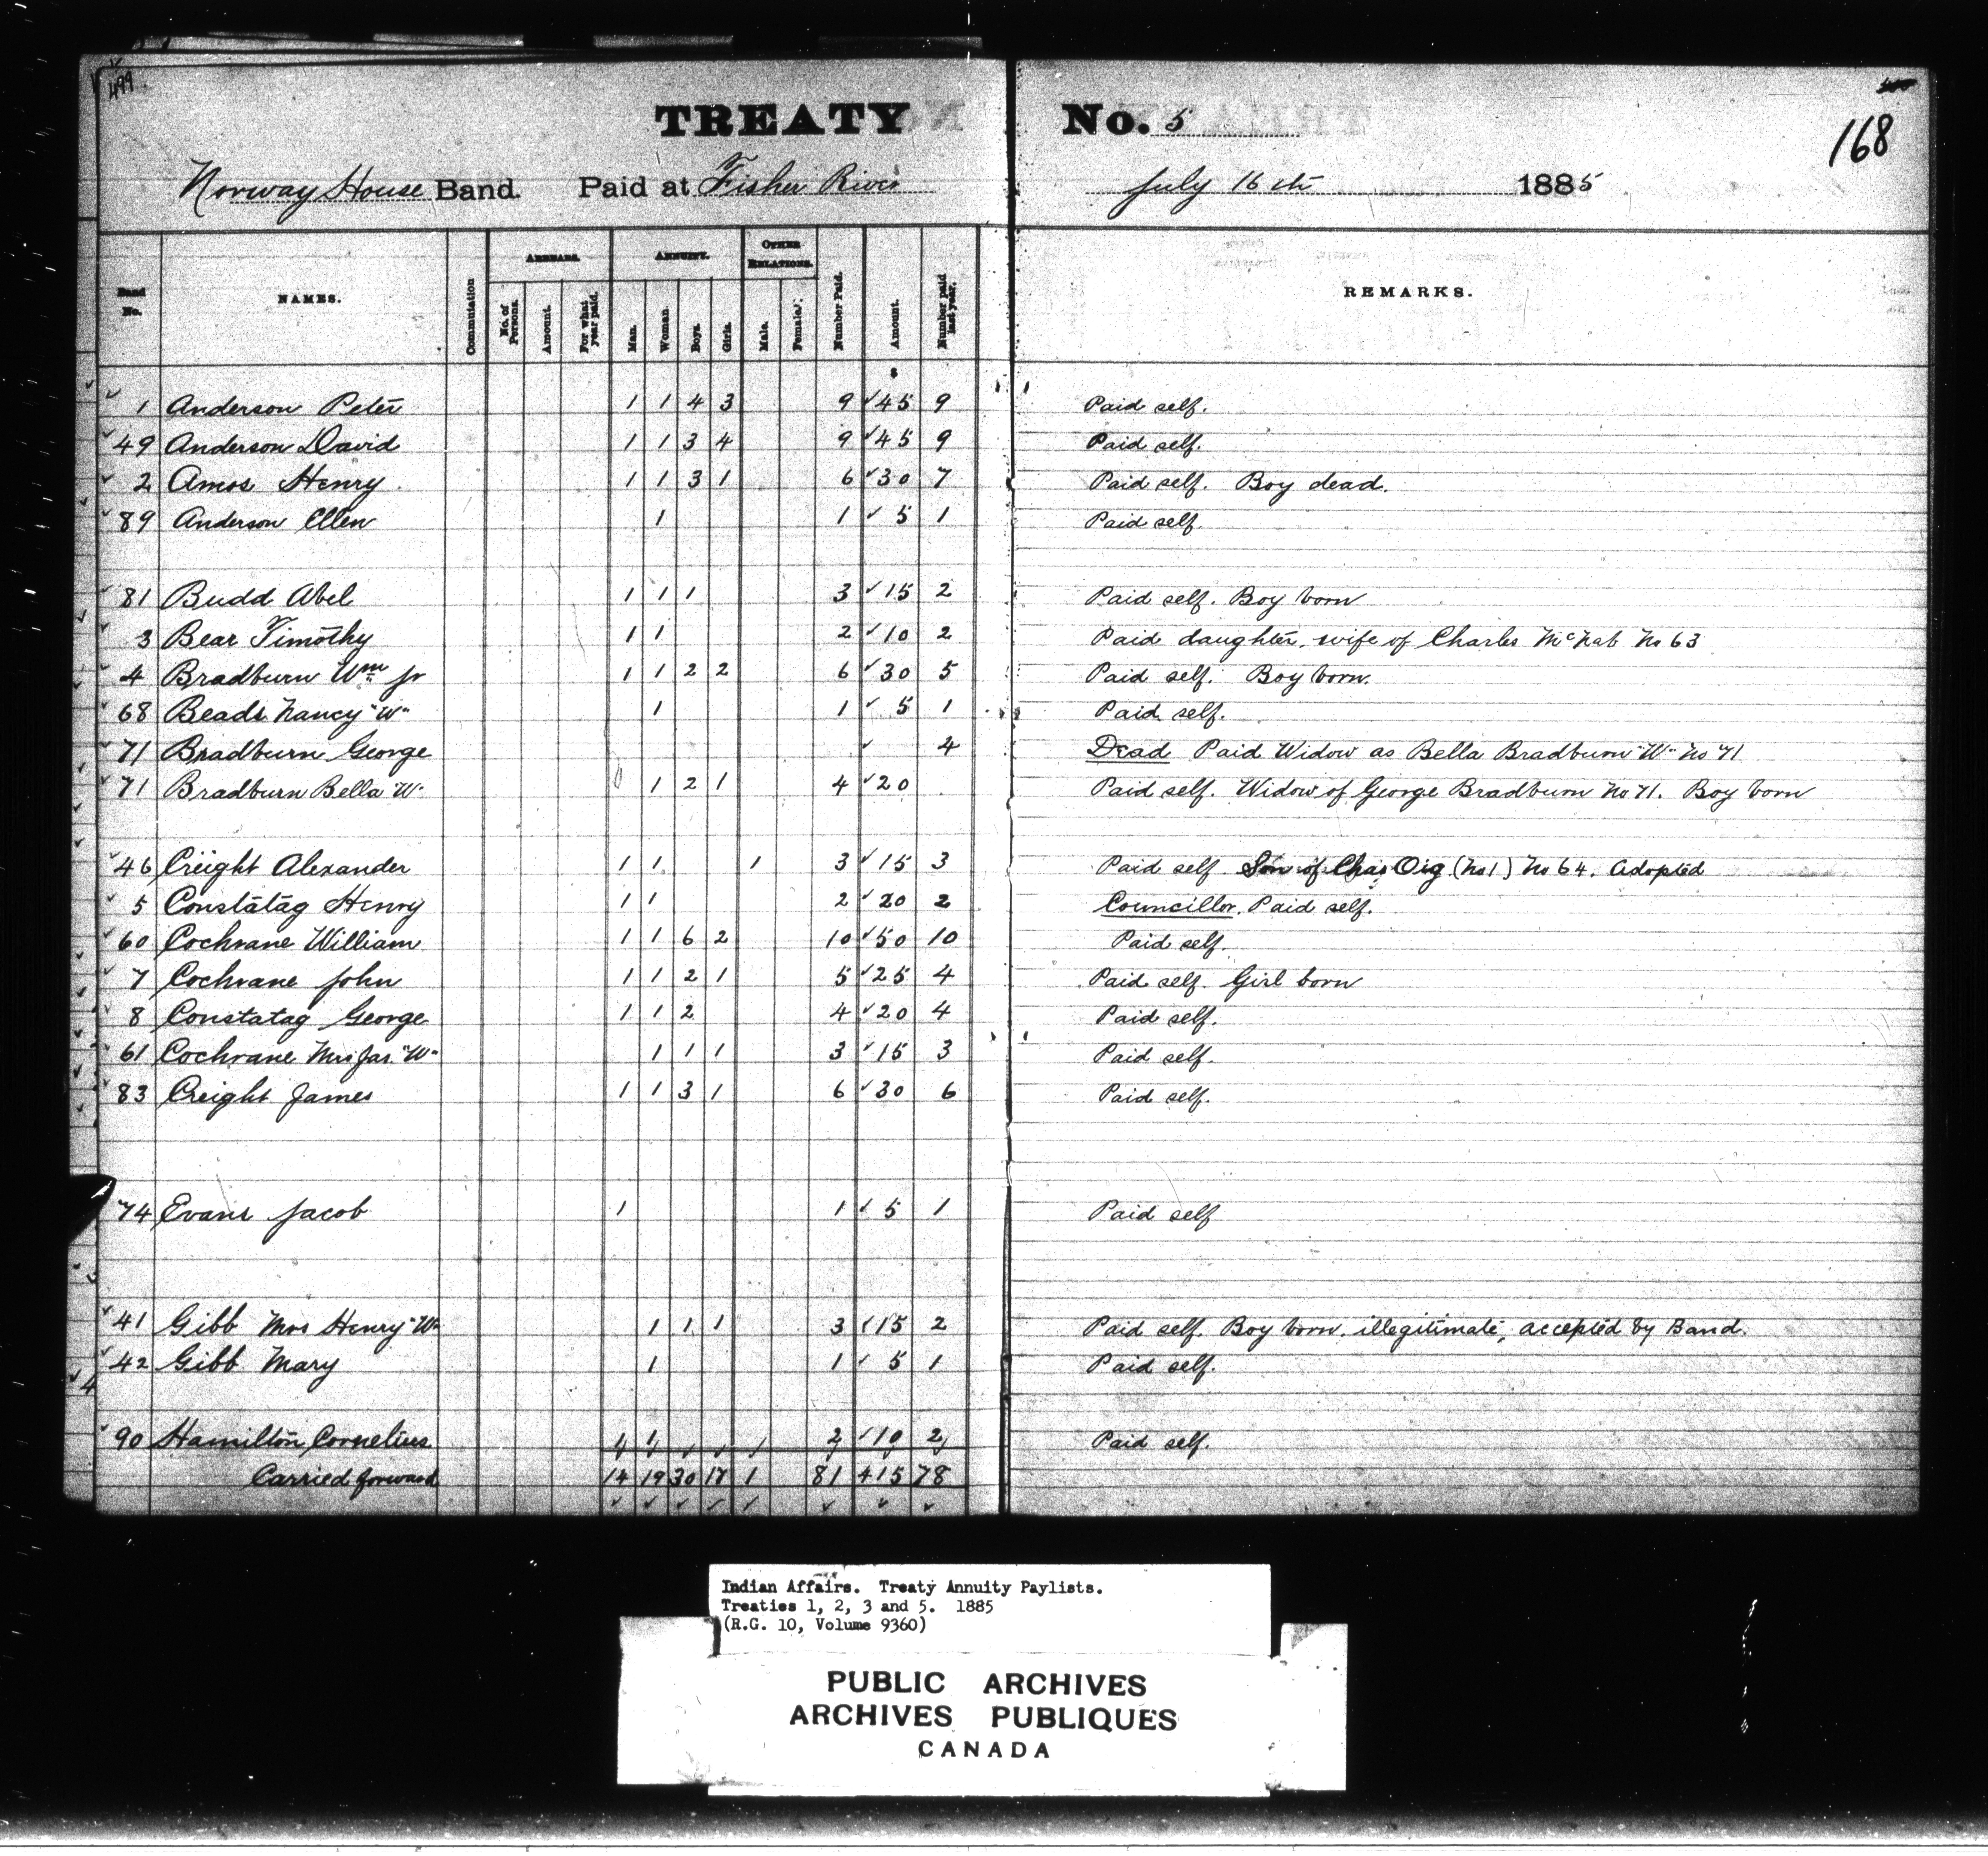 499
TREATY No. 5
168
Norway House Band. Paid at Fisher River July 16th 1885
Band No. NAMES. Commutation ARREARS. No. of Persons. Amount. For what year paid. ANNUITY. Man. Woman. Boys. Girls. OTHER RELATIONS. Male. Female. Number Paid. Amount. Number paid last year. REMARKS.
$
1 Anderson Peter 1 1 4 3 9 45 9 Paid self.
49 Anderson David 1 1 3 4 9 45 9 Paid self.
2 Amos Henry 1 1 3 1 6 30 7 Paid self. Boy dead.
89 Anderson Ellen 1 1 5 1 Paid self
81 Budd Abel 1 1 1 3 15 2 Paid self. Boy born
3 Bear Timothy 1 1 2 10 2 Paid daughter, wife of Charles McNab No 63
4 Bradburn Wm Jr 1 1 2 2 6 30 5 Paid self. Boy born.
68 Beads Nancy "W" 1 1 5 1 Paid self.
71 Bradburn George 4 Dead Paid Widow as Bella Bradburn "W" No 71
71 Bradburn Bella "W" 1 2 1 4 20 Paid self. Widow of George Bradburn No 71. Boy born
46 Creight Alexander 1 1 1 3 15 3 Paid self. Son of Chas Oig (No 1) No 64. Adopted
5 Constatag Henry 1 1 2 20 2 Councillor. Paid self.
60 Cochrane William 1 1 6 2 10 50 10 Paid self.
7 Cochrane John 1 1 2 1 5 25 4 Paid self. Girl born
8 Constatag George 1 1 2 4 20 4 Paid self.
61 Cochrane Mrs Jas. "W" 1 1 1 3 15 3 Paid self.
83 Creight James 1 1 3 1 6 30 6 Paid self.
74 Evans Jacob 1 1 5 1 Paid self
41 Gibb Mrs Henry "W" 1 1 1 3 15 2 Paid self. Boy born, illegitimate, accepted by Band.
42 Gibb Mary 1 1 5 1 Paid self.
90 Hamilton Cornelius 1 1 2 10 2 Paid self.
Carried forward 14 19 30 17 1 81 415 78
Indian Affairs. Treaty Annuity Paylists.
Treaties 1, 2, 3 and 5. 1885
(R.G. 10, Volume 9360)
PUBLIC ARCHIVES
ARCHIVES PUBLIQUES
CANADA